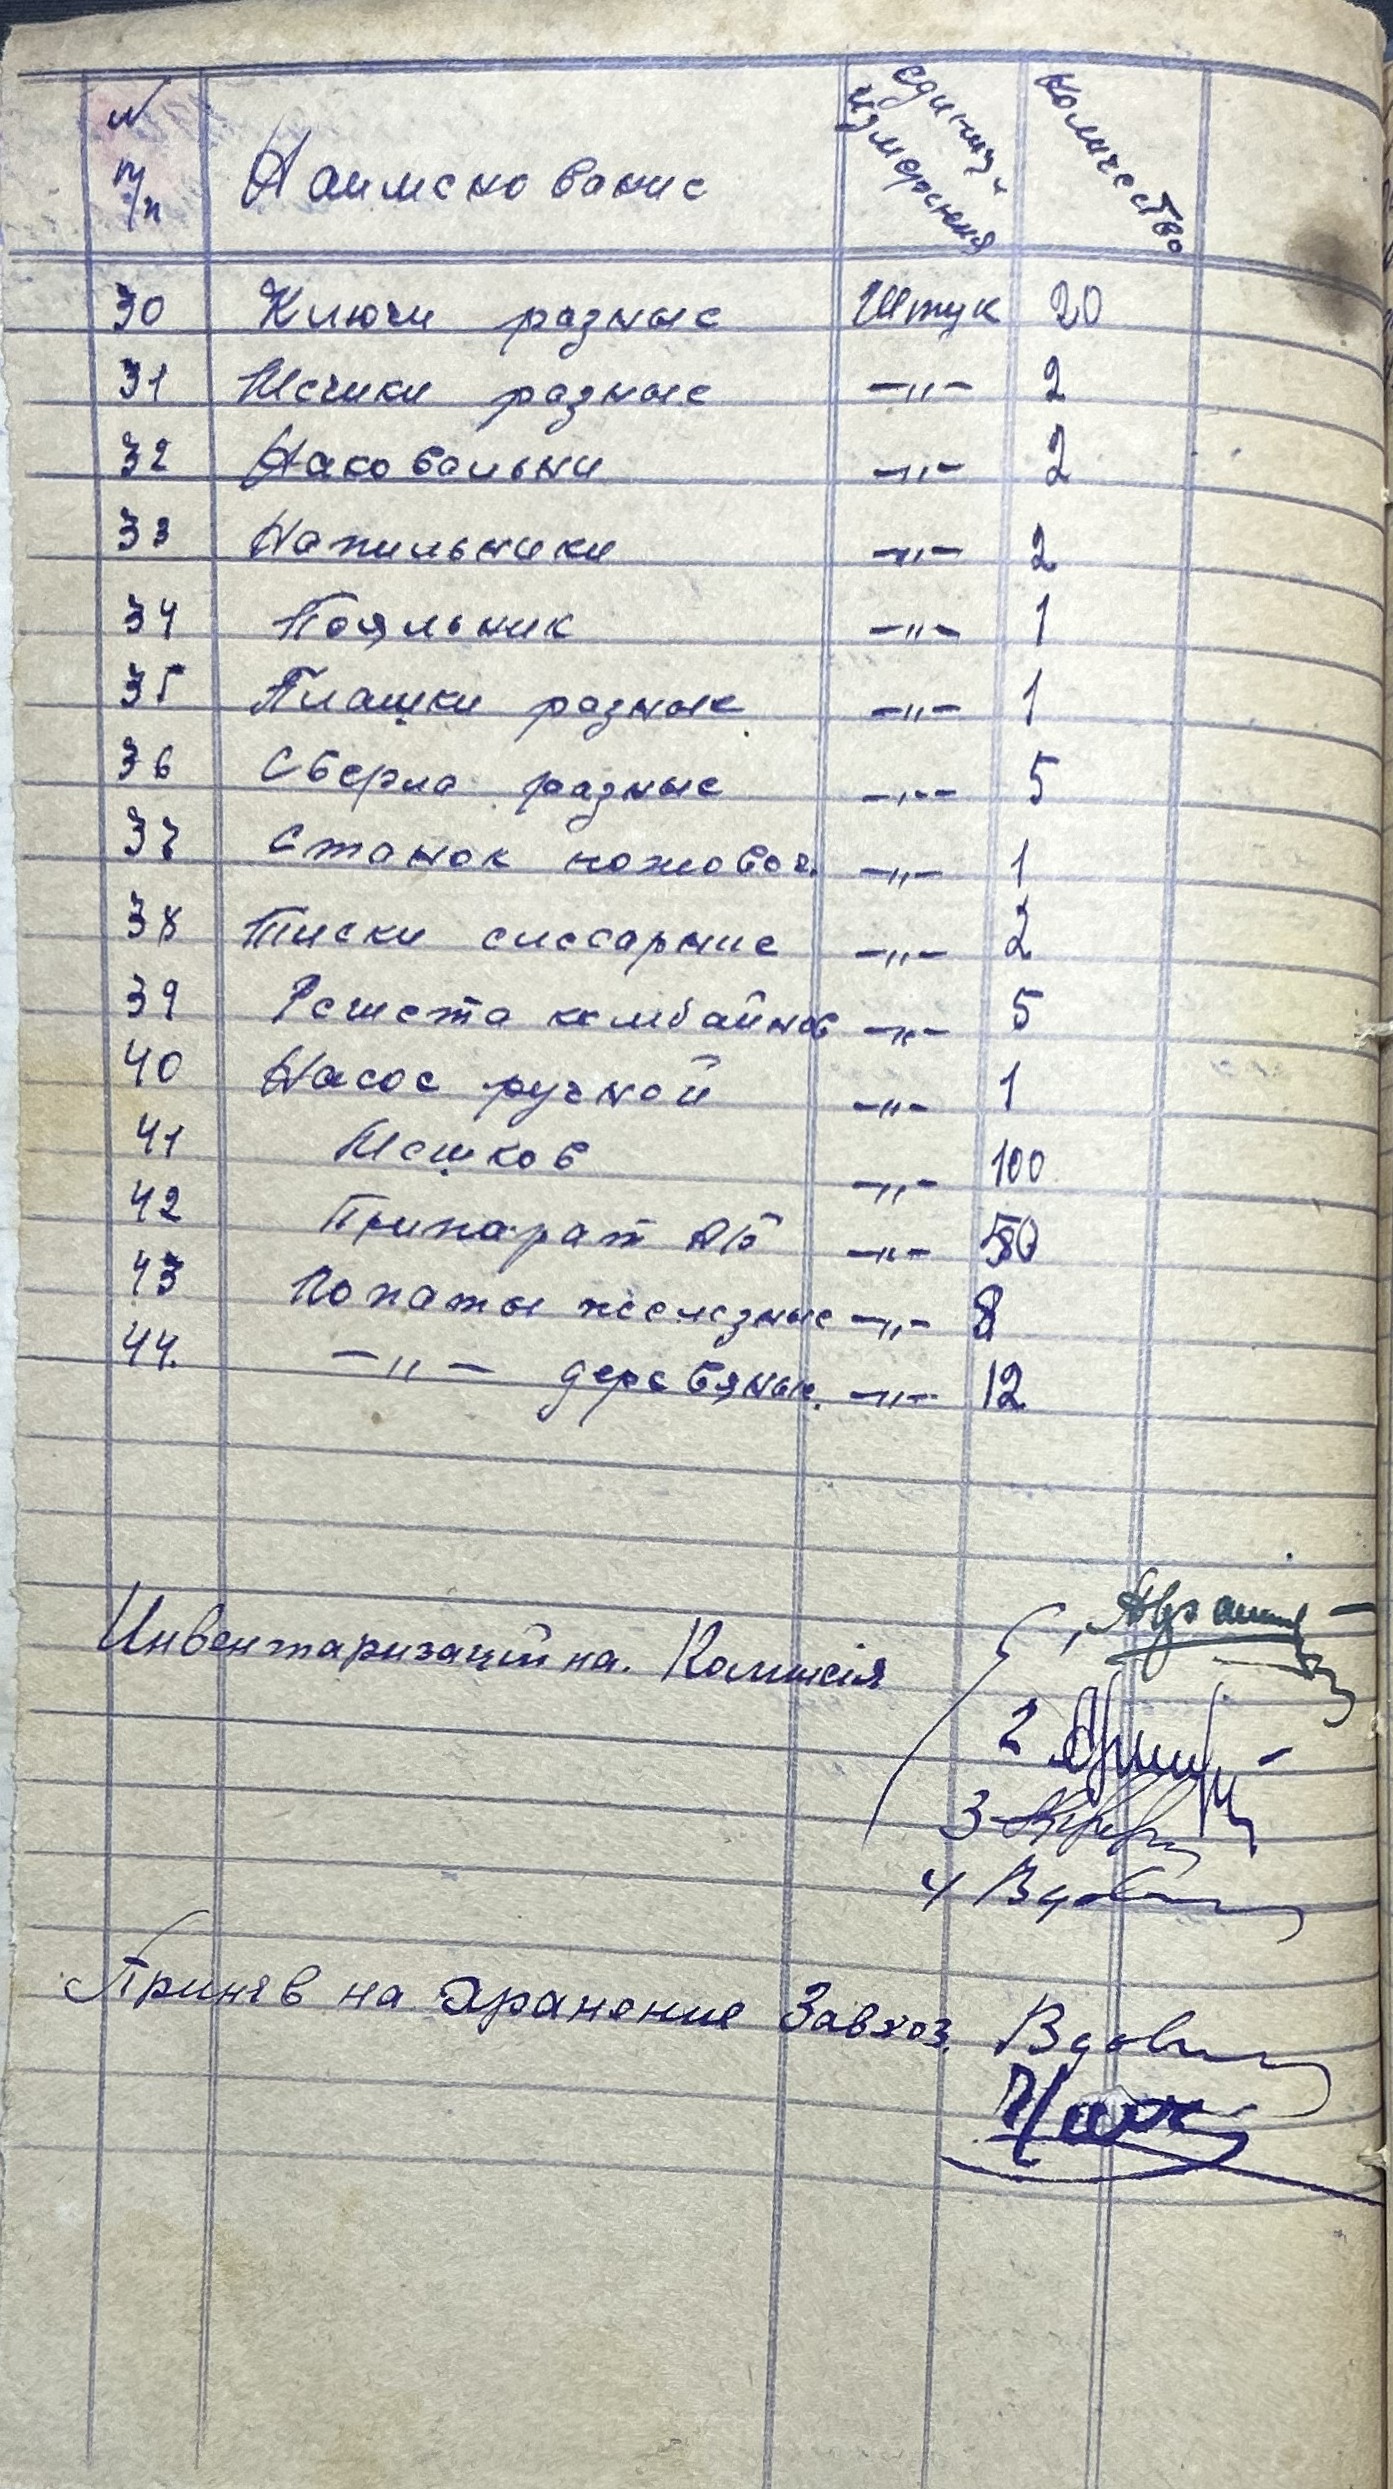 № п/п Наименование единиц. измерения Количество
30 Ключи разные Штук 20
31 Мечики разные —„— 2
32 Наковальни —„— 2
33 Напильники —„— 2
34 Пояльник —„— 1
35 Плашки разные —„— 1
36 Сверла разные —„— 5
37 Станок ножовоч. —„— 1
38 Тиски слесарные —„— 2
39 Решета комбайнов —„— 5
40 Насос ручной —„— 1
41 Мешков —„— 100
42 Припарат АБ —„— 50
43 Лопаты железные —„— 8
44. —„— деревяные. —„— 12
Инвентаризаційна. Комисія 1,
2
3
4 Вдов
Приняв на хранение Завхоз. Вдов